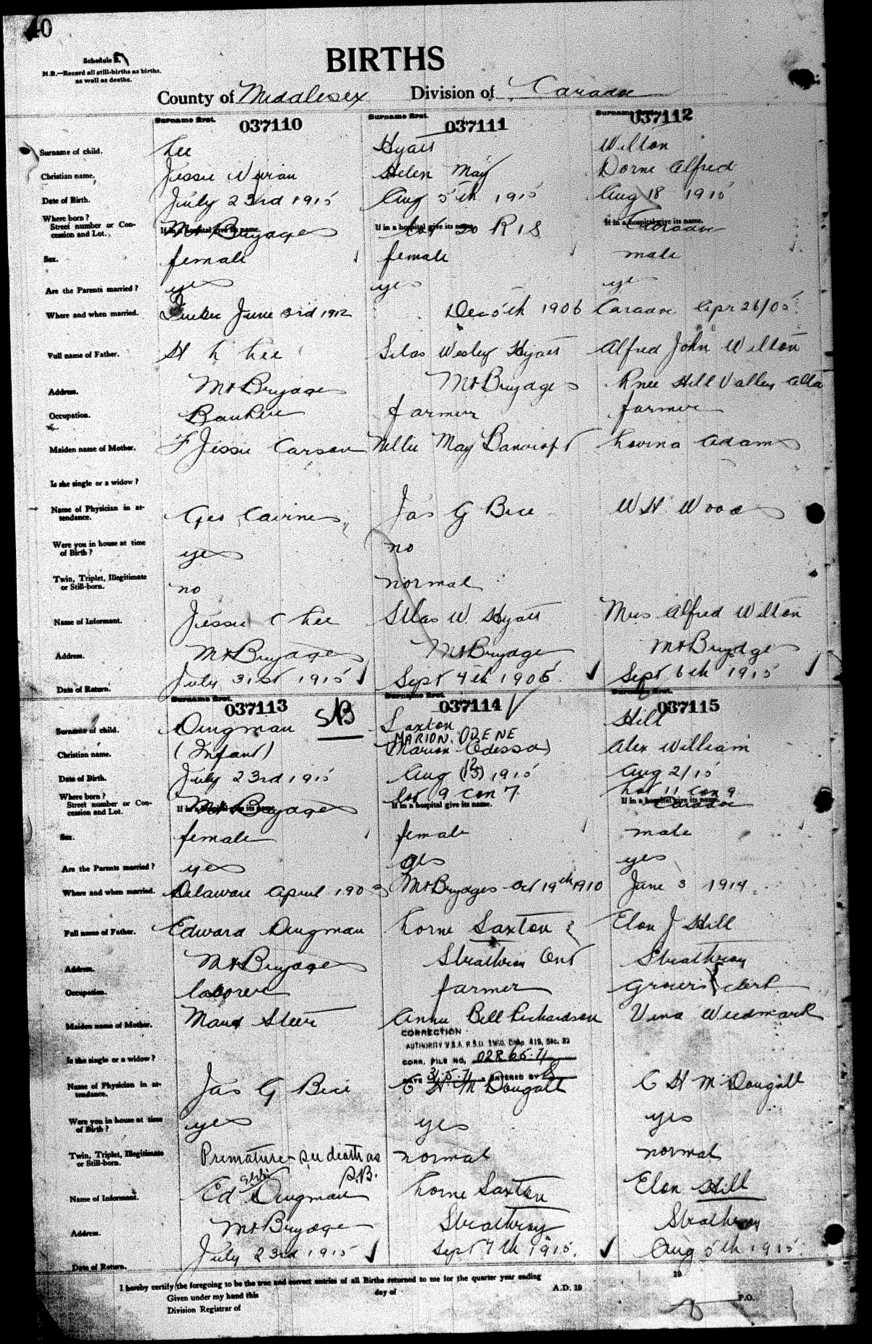 40
Schedule
N.B.—Record all still-births as births,
as well as deaths.
BIRTHS
County of Middlesex Division of Caradoc
Surname first. Surname first. Surname first.
037110 037111 037112
Surname of child. Lee Hyatt Wilton
Christian name. Jessie Helen May Dorne Alfred
Date of Birth. July 23rd 1915 Aug 5th 1915 Aug 18 1915
Where born?
Street number or Concession and Lot. If in a hospital give its name. Mt Brydges If in a hospital give its name. Lot 20 R 1 S If in a hospital give its name. Caradoc
Sex. female female male
Are the Parents married? yes yes yes
Where and when married. June 3rd 1912 Dec 5th 1906 Caradoc Apr 26/05
Full name of Father. H L Lee Silas Wesley Hyatt Alfred John Wilton
Address. Mt Brydges Mt Brydges Knee Hill Valley Alta
Occupation. Banker farmer farmer
Maiden name of Mother. F Jessie Carson Nellie May Bancroft Lovina Adams
Is she single or a widow?
Name of Physician in attendance. Geo Cairnes Jas G Bice W H Woods
Were you in house at time of Birth? yes no
Twin, Triplet, Illegitimate or Still-born. no normal
Name of Informant. Jessie C Lee Silas W. Hyatt Mrs Alfred Wilton
Address. Mt Brydges Mt Brydges Mt Brydges
Date of Return. July 31st 1915 Sept 4th 1905. Sept 6th 1915
Surname first. Surname first. Surname first.
037113 037114 037115
Surname of child. Dingman SB Saxton Hill
MARION ODENE
Christian name. (Infant) (Marion Odessa) Alex William
Date of Birth. July 23rd 1915 Aug 12 (13) 1915 Aug 2/15
Where born?
Street number or Concession and Lot. If in a hospital give its name. Mt Brydges Lot 9 Con 7 If in a hospital give its name. Lot 11 Con 9 If in a hospital give its name. Caradoc
Sex. female female male
Are the Parents married? yes yes yes
Where and when married. Delaware April 1903 Mt Brydges Oct 19th 1910 June 3 1914
Full name of Father. Edward Dingman Lorne Saxton Elon J Hill
Address. Mt Brydges Strathroy Ont Strathroy
Occupation. laborer farmer Grocers clerk
Maiden name of Mother. Maud Steer Annie Bell Richardson Vina Weedmark
CORRECTION
AUTHORITY V.S.A. R.S.O. Chap. 419, Sec.
Is she single or a widow? CORR. FILE NO. 02865-71
DATE 31.5.71 ENTERED BY
Name of Physician in attendance. Jas G Bice C H McDougall C H McDougall
Were you in house at time of Birth? yes yes yes
Twin, Triplet, Illegitimate or Still-born. Premature - see death as S.B. normal normal
Name of Informant. Ed Dingman Lorne Saxton Elon Hill
Address. Mt Brydges Strathroy Strathroy
Date of Return. July 23rd 1915 Sept 7th 1915. Aug 5th 1915
I hereby certify the foregoing to be the true and correct entries of all Births returned to me for the quarter year ending 19
Given under my hand this day of A.D. 19
Division Registrar of P.O.